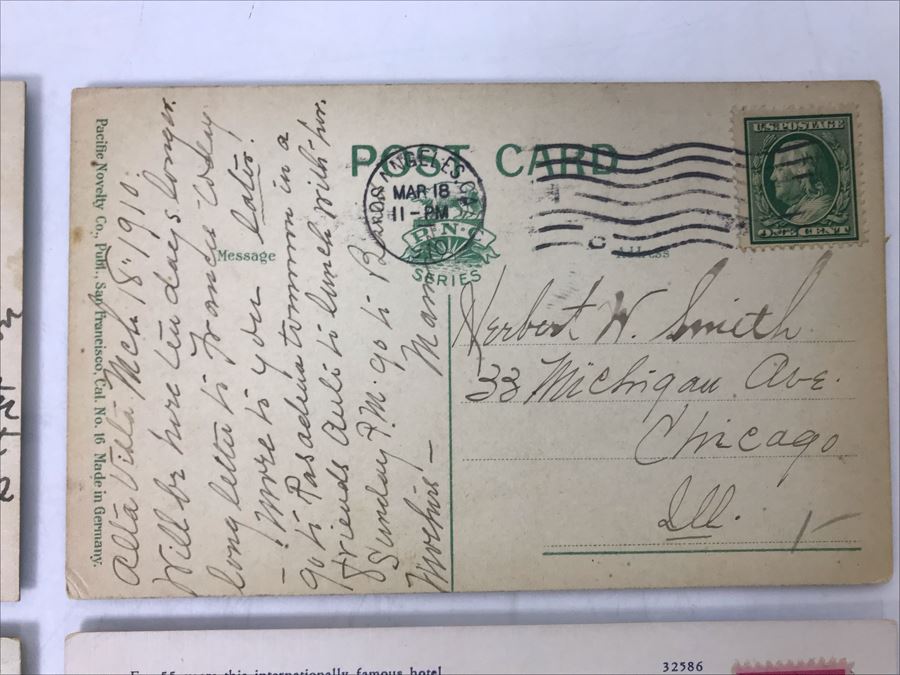 Pacific Novelty Co., Publ., San Francisco, Cal. No. 16 Made in Germany.
POST CARD
Message
Address
P.N.C.
SERIES
LOS ANGELES, CAL.
MAR 18
11-PM
1910
U.S. POSTAGE
ONE CENT
Alta Villa. Mch 18" 1910.
Will be here ten days longer.
long letter to France today
- more to you later.
go to Pasadena tomorrow in a
friends Auto to lunch with her.
Sunday P.M. go to
Mama
Herbert W. Smith
33 Michigan Ave.
Chicago
Ill.
For 55 years this internationally famous hotel
32586